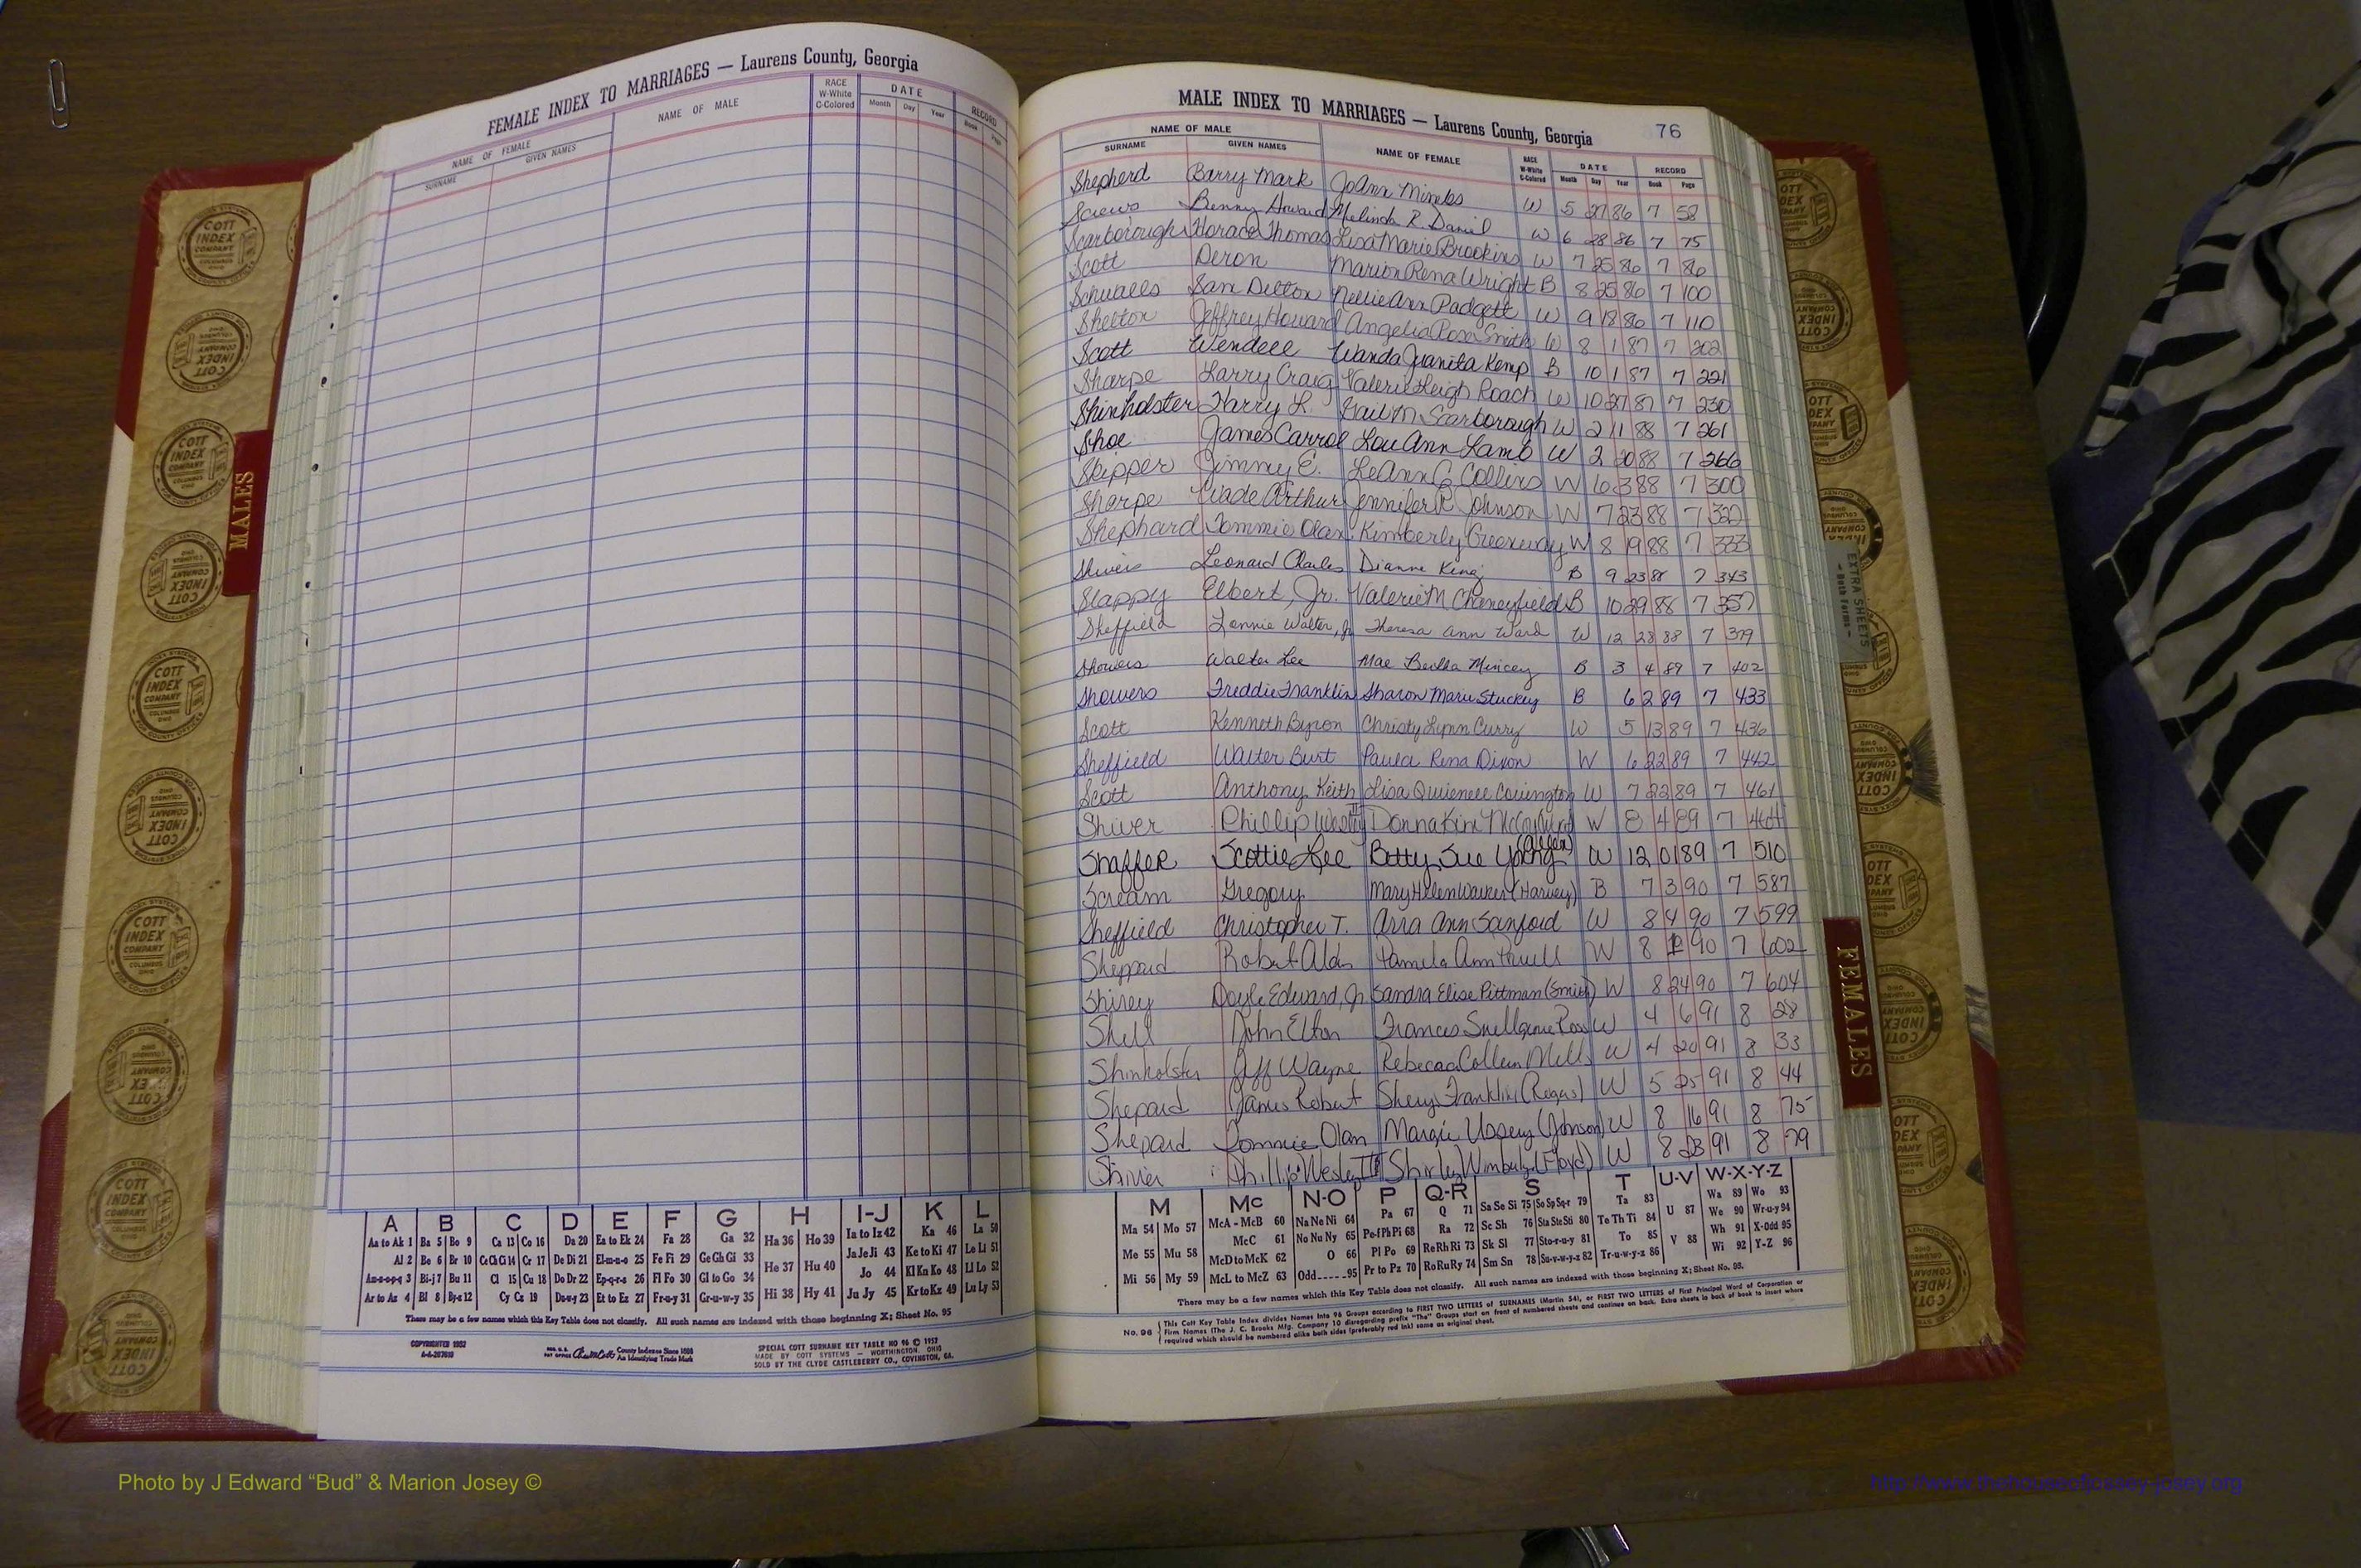 FEMALE INDEX TO MARRIAGES — Laurens County, Georgia
NAME OF FEMALE NAME OF MALE RACE W-White C-Colored DATE RECORD
SURNAME GIVEN NAMES Month Day Year Book Page
MALE INDEX TO MARRIAGES — Laurens County, Georgia 76
NAME OF MALE NAME OF FEMALE RACE W-White C-Colored DATE RECORD
SURNAME GIVEN NAMES Month Day Year Book Page
Shepherd Barry Mark JoAnn Mimbs W 5 27 86 7 58
Screws Benny Howard Melinda R. Daniel W 6 28 86 7 75
Scarborough Horace Thomas Lisa Marie Brookins W 7 25 86 7 86
Scott Deron Marion Rena Wright B 8 25 86 7 100
Schwalls Sam Delton Nellie Ann Padgett W 9 18 86 7 110
Shelton Jeffrey Howard Angelia Rose Smith W 8 1 87 7 202
Scott Wendell Wanda Juanita Kemp B 10 1 87 7 221
Sharpe Larry Craig Valerie Leigh Roach W 10 27 87 7 230
Shinholster Harry L. Gail M Scarborough W 2 11 88 7 261
Shoe James Carrol Lou Ann Lamb W 2 20 88 7 266
Skipper Jimmy E. LeAnn G Collins W 6 3 88 7 300
Sharpe Wade Arthur Jennifer R Johnson W 7 23 88 7 320
Shephard Tommie Olan Kimberly Greenway W 8 19 88 7 333
Shivers Leonard Charles Dianne King B 9 23 88 7 343
Slappy Elbert, Jr. Valerie M Chaneyfield B 10 29 88 7 357
Sheffield Lonnie Walter, Jr Theresa Ann Ward W 12 28 88 7 379
Showers Walter Lee Mae Bertha Mincey B 3 4 89 7 402
Showers Freddie Franklin Sharon Marie Stuckey B 6 2 89 7 433
Scott Kenneth Byron Christy Lynn Curry W 5 13 89 7 436
Sheffield Walter Burt Paula Rena Dixon W 6 22 89 7 442
Scott Anthony Keith Lisa Covington W 7 22 89 7 461
Shiver Phillip III Donna Kim W 8 4 89 7 464
Shaffer Scottie Lee Betty Sue Young W 12 01 89 7 510
Scream Gregory Mary Helen Walker (Harvey) B 7 3 90 7 587
Sheffield Christopher T. Arra Ann Sanford W 8 4 90 7 599
Sheppard Robert Pamela Ann W 8 90 7 602
Shirey Doyle Edward, Jr Sandra Elise Pittman (Smith) W 8 24 90 7 604
Shell John Elton Frances Ross W 4 6 91 8 28
Shinholster Jeff Wayne Rebecca Colleen Mills W 4 20 91 8 33
Shepard James Robert Sheryl Franklin W 5 25 91 8 44
Shepard Tommie Olan Margie Ussery (Johnson) W 8 16 91 8 75
Shiver Phillip Wesley III Shirley Wimberly (Floyd) W 8 23 91 8 79
A B C D E F G H I-J K L
Aa to Ak 1 Ba 5 Bo 9 Ca 13 Co 16 Da 20 Ea to Ek 24 Fa 28 Ga 32 Ha 36 Ho 39 Ia to Iz 42 Ka 46 La 50
Al 2 Be 6 Br 10 Ce Ch Ci 14 Cr 17 De Di 21 El-m-n-o 25 Fe Fi 29 Ge Gh Gi 33 He 37 Hu 40 Ja Je Ji 43 Ke to Ki 47 Le Li 51
An-s-o-p-q 3 Bi-j 7 Bu 11 Cl 15 Cu 18 Do Dr 22 Ep-q-r-s 26 Fl Fo 30 Gl to Go 34 Jo 44 Kl Kn Ko 48 Ll Lo 52
Ar to Az 4 Bl 8 By-z 12 Cy Cz 19 Du-w-y 23 Et to Ez 27 Fr-u-y 31 Gr-u-w-y 35 Hi 38 Hy 41 Ju Jy 45 Kr to Kz 49 Lu Ly 53
There may be a few names which this Key Table does not classify. All such names are indexed with those beginning X; Sheet No. 95
SPECIAL COTT SURNAME KEY TABLE NO 96 © 1957
MADE BY COTT SYSTEMS — WORTHINGTON, OHIO
SOLD BY THE CLYDE CASTLEBERRY CO., COVINGTON, GA.
County Indexes Since 1888
An Identifying Trade Mark
M Mc N-O P Q-R S T U-V W-X-Y-Z
Ma 54 Mo 57 McA - McB 60 Na Ne Ni 64 Pa 67 Q 71 Sa Se Si 75 So Sp Sq-r 79 Ta 83 U 87 Wa 89 Wo 93
Me 55 Mu 58 McC 61 No Nu Ny 65 Pe-f Ph Pi 68 Ra 72 Sc Sh 76 Sta Ste Sti 80 Te Th Ti 84 We 90 Wr-u-y 94
McD to McK 62 O 66 Pl Po 69 Re Rh Ri 73 Sk Sl 77 Sto-r-u-y 81 To 85 V 88 Wh 91 X-Odd 95
Mi 56 My 59 McL to McZ 63 Odd-----95 Pr to Pz 70 Ro Ru Ry 74 Sm Sn 78 Su-v-w-y-z 82 Tr-u-w-y-z 86 Wi 92 Y-Z 96
There may be a few names which this Key Table does not classify. All such names are indexed with those beginning X; Sheet No. 95.
No. 96 This Cott Key Table Index divides Names into 96 Groups according to FIRST TWO LETTERS of SURNAMES (Martin 54), or FIRST TWO LETTERS of First Principal Word of Corporation or
Firm Names (The J. C. Brooks Mfg. Company 10 disregarding prefix "The" Groups start on front of numbered sheets and continue on back. Extra sheets in back of book to insert where
required which should be numbered alike both sides (preferably red ink) same as original sheet.
MALES
FEMALES
EXTRA SHEETS
— Both Forms —
COTT INDEX COMPANY COLUMBUS OHIO
FOR COUNTY OFFICES
Photo by J Edward “Bud” & Marion Josey ©
http://www.thehouseofjossey-josey.org